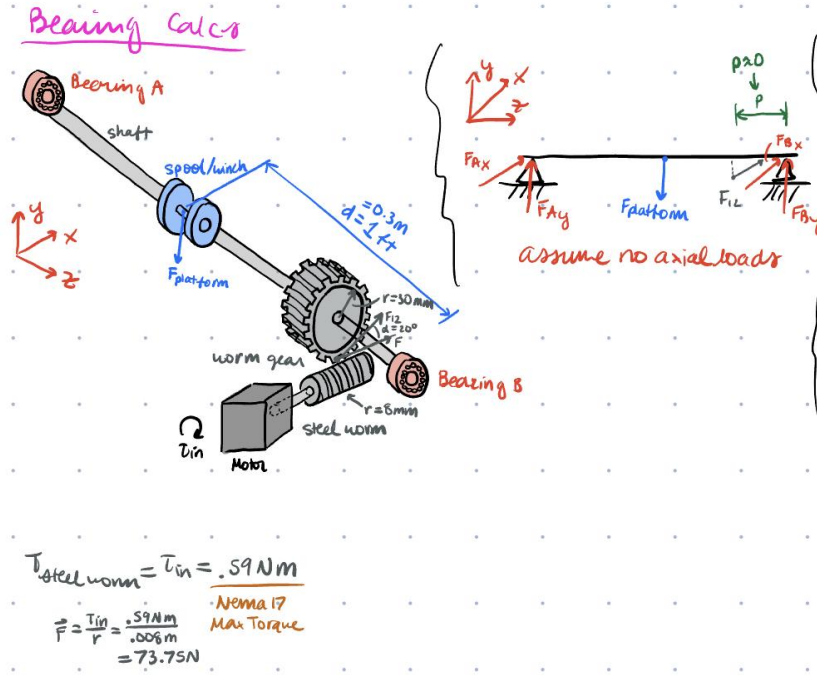 Bearing Calcs
Bearing A
shaft
spool/winch
=0.3m
d=1ft
y
x
z
Fplatform
r=30mm
F12
α=20°
F
worm gear
Bearing B
r=8mm
steel worm
τin
Motor
y
x
z
p≈0
P
FAx
FAy
Fplatform
F12
FBx
FBy
assume no axial loads
τsteel worm = τin = .59Nm
Nema 17
Max Torque
F = τin/r = .59Nm/.008m
= 73.75N